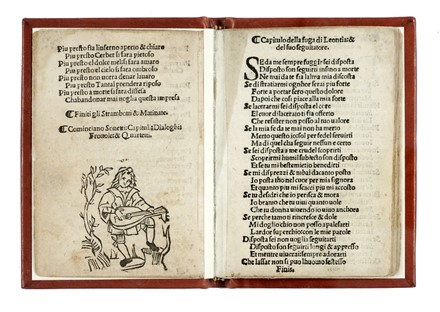 Piu presto fia linferno aperto & chiaro
Piu presto Cerber si fara pietoso
Piu presto el dolce mel si fara amaro
Piu presto el cielo si fara ombroso
Piu presto non uorra denar lauaro
Piu presto Tantal prendera riposo
Piu presto a morte si fara difesa
Chabandonar mai uoglia questa impresa
¶ Finiti gli Strambotti & Matinate.
¶ Cominciano Sonetti Capituli Dialoghi
Frottole & Quartetti.
¶ Capitulo della fuga di Leontia: &
del suo seguitatore.
SE da me sempre fuggir sei disposta
Disposto son seguirti insino a morte
Ne mai da te fia lalma mia discosta
Se di stratiarmi ognhor serai piu forte
Forte a portar sero questo dolore
Dapoi che cosi piace alla mia sorte
Se lacerar disposta sei el core
El cor dilacerati ti fia offerto
Che resister non posso al tuo ualore
Se la mia feda te mai non ha merto
Merto questo iossel per fedel seruirti
Ma di quel cha seguir nessun e certo
Se sei disposta a me crudel scoprirti
Scoprirmi humil subiecto son disposto
Et se tu mi bestemi io benedirti
Se mi disprezi & mhai dacanto posto
Io posta tho nel cuor per mia signora
Et quanto piu mi scacci piu maccosto
Se tu desidri che io perisca & mora
Io bramo che tu uiui quanto uole
Che tu donna uiuendo io uiuo anchora
Se perche tamo ti rincresce & dole
Mi doglio chio non posso palesarti
Lardor superchio con le mie parole
Disposta sei non uoglia seguitarti
Disposto son seguirti longi & appresso
Et mentre uiuero sempre adorarti
Che lassar non si puo lhuomo se stesso
Finis.